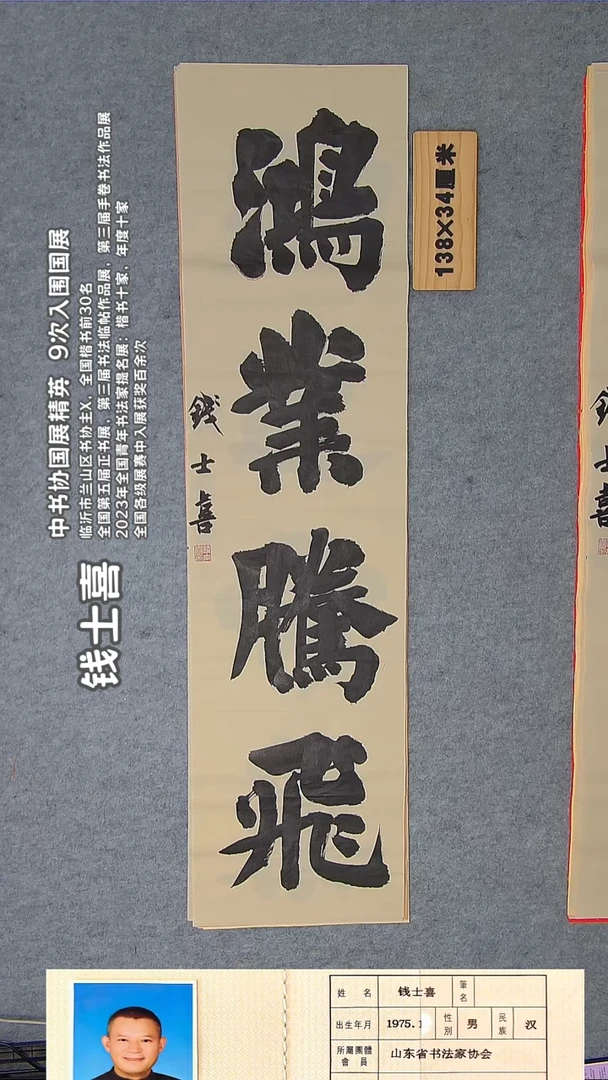 鴻業騰飛
錢士喜
138×34厘米
錢士喜
钱士喜
中书协国展精英 9次入围国展
临沂市兰山区书协主X，全国楷书前30名
全国第五届正书展，第三届书法临帖作品展，第三届手卷书法作品展
2023年全国青年书法家提名展：楷书十家，年度十家
全国各级展赛中入展获奖百余次
姓 名 钱士喜 筆名
出生年月 1975.1 性別 男 民族 汉
所屬團體會員 山东省书法家协会